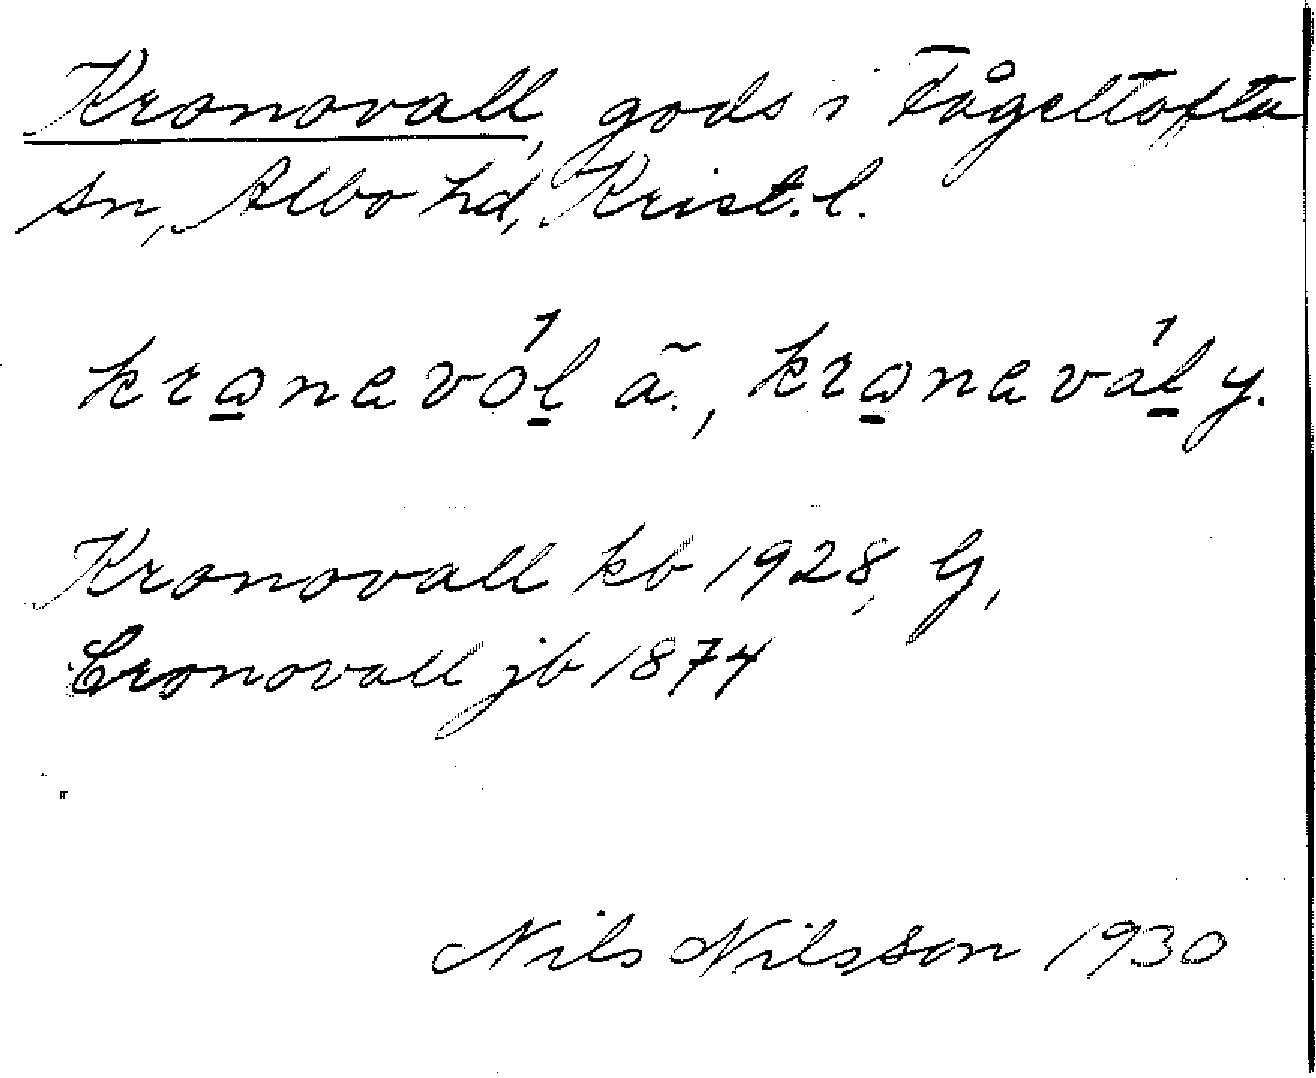 Kronovall, gods i Fågeltofta
sn, Albo hd, Krist. l.
kra̲navó̍l̲ ã., kra̲navá̍l̲ y.
Kronovall kb 1928, G,
Cronovall jb 1874
Nils Nilsson 1930